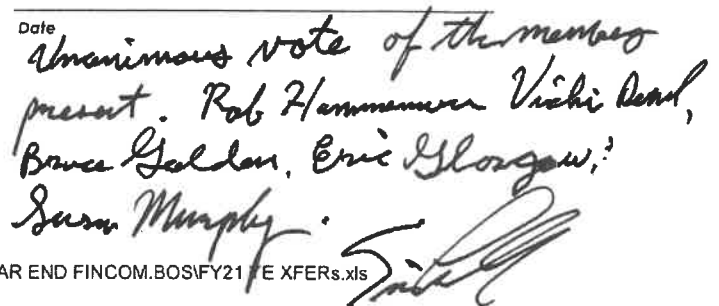 Date
Unanimous vote of the members
present. Rob Vicki
Bruce Golden, Eric Glasgow,
Susan Murphy.
AR END FINCOM.BOS\FY21 YE XFERs.xls